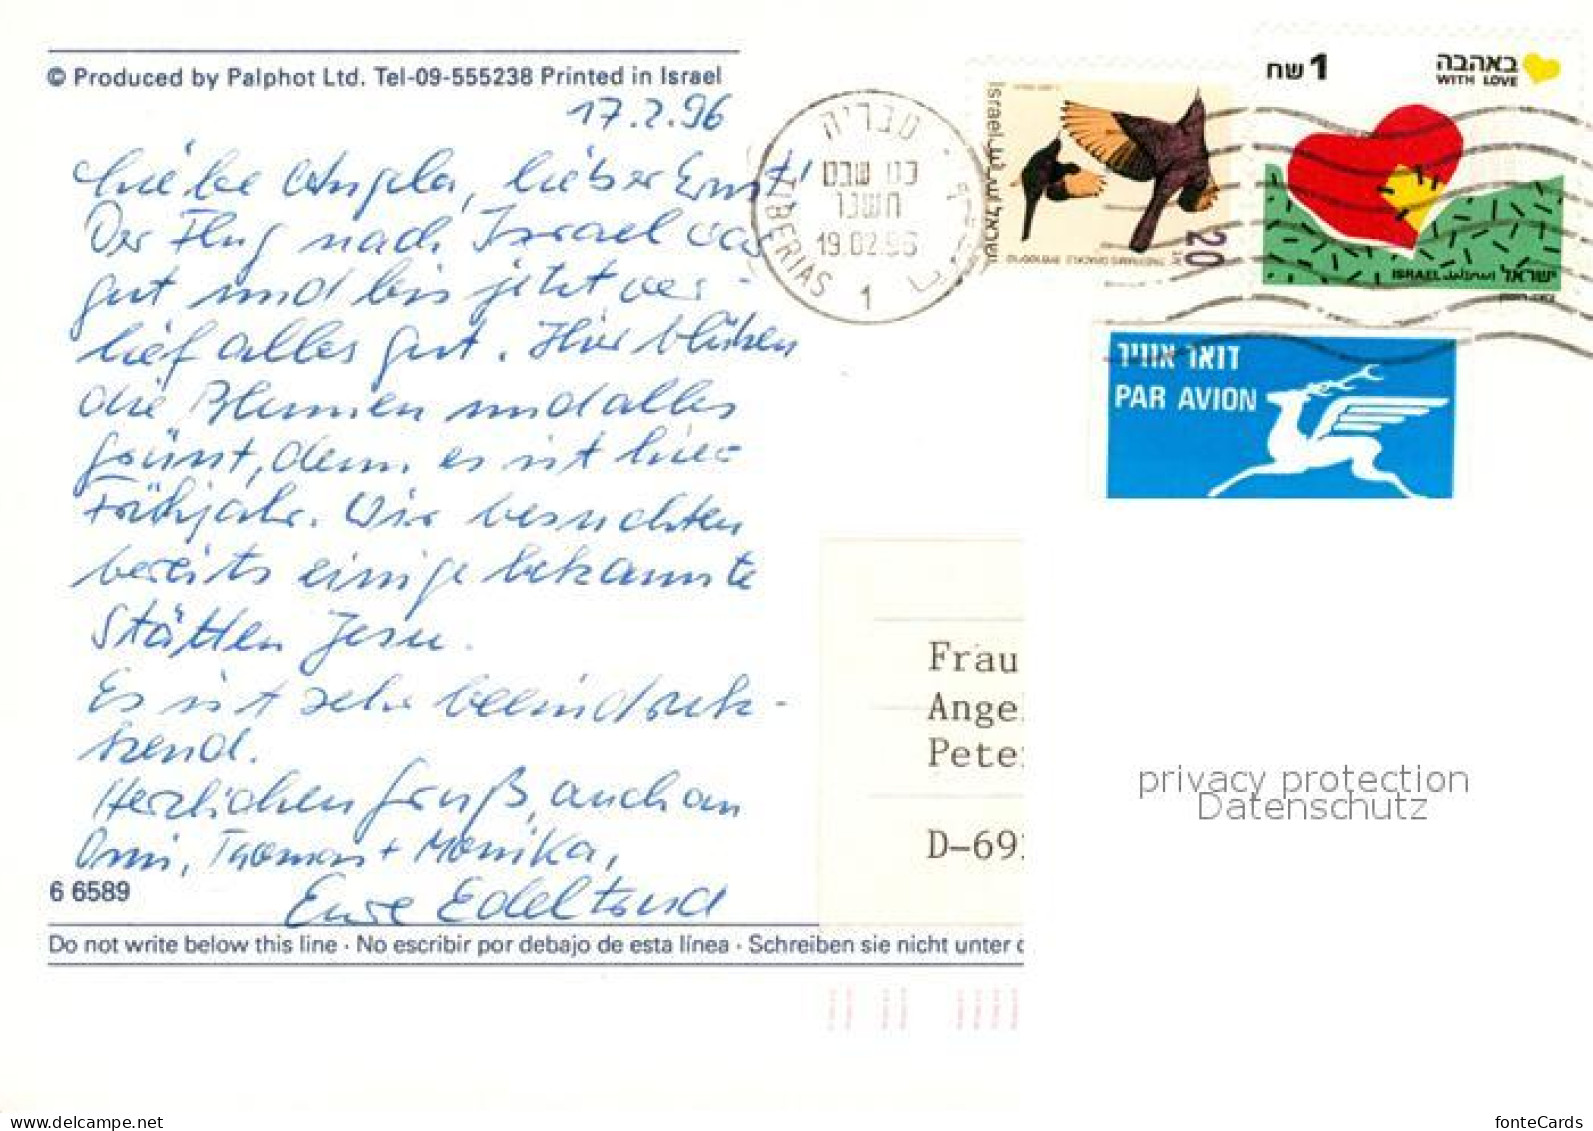 © Produced by Palphot Ltd. Tel-09-555238 Printed in Israel
17.2.96
Liebe Angela, lieber Ernst!
Der Flug nach Israel war
gut und bis jetzt ver-
lief alles gut. Hier blühen
die Blumen und alles
grünt, denn es ist hier
Frühjahr. Wir besuchten
bereits einige bekannte
Stätten Jesu.
Es ist sehr beeindruk-
kend.
Herzlichen Gruß, auch an
Omi, Thomas + Monika,
Eure Edeltrud
6 6589
Do not write below this line · No escribir por debajo de esta línea · Schreiben sie nicht unter
טבריה
כט שבט
תשנו
19.02.96
TIBERIAS
1
Israel
ישראל
20
TRISTRAM'S GRACKLE
1 שח
באהבה
WITH LOVE
ISRAEL اسرائيل ישראל
דואר אוויר
PAR AVION
Frau
Ange
Pete
D-69
privacy protection
Datenschutz
www.delcampe.net
fonteCards